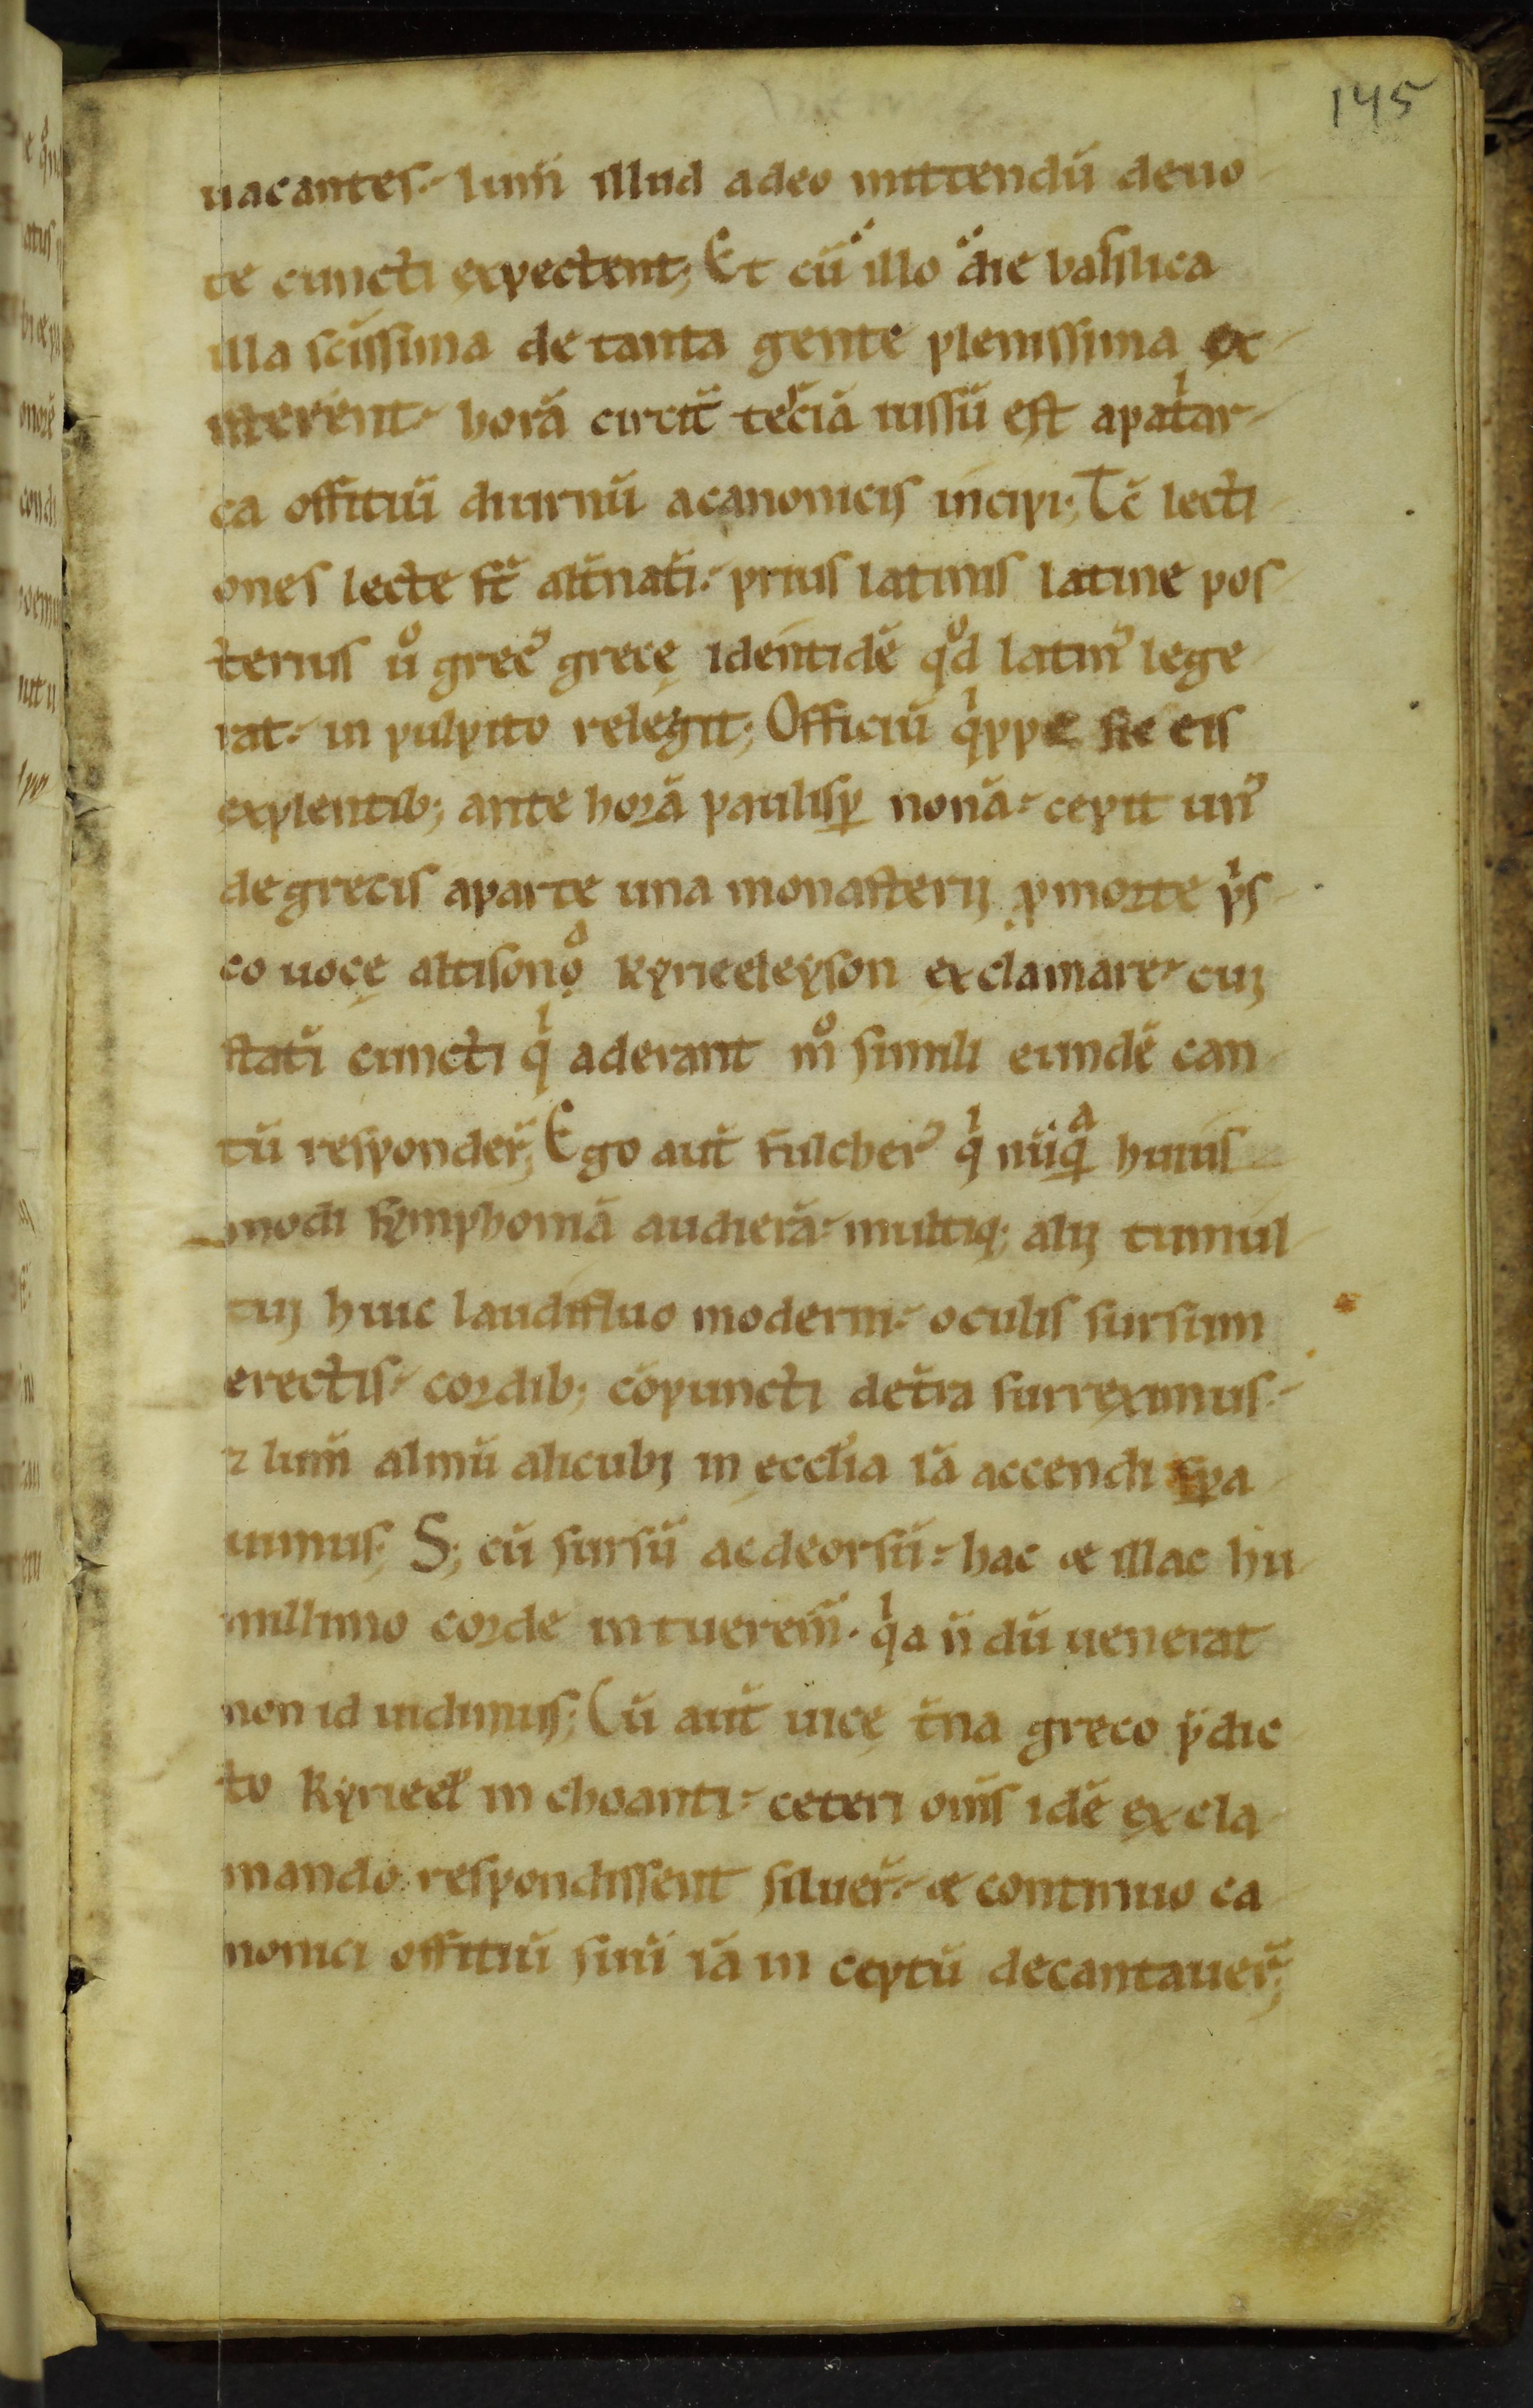 145
uacantes. lum̄ illud adeo mittendū deuo
te cuncti expectent; Et cū illo die basilica
illa scīssima de tanta gente plenissima ex
isterent. horā circit̄ terciā iussū est apatar
ca offitiū diurnū acanonicis incipi; Tc̄ lecti
ones lecte st̄ alt̄nati. prius latinis latine pos
terius ůo grec᾽ grecę identidē qd̊ latin᾽ lege
rat. in pulpito relegit; Officiū qippe sic eis
explentib; ante horā paulisꝑ nonā. cepit un᾽
degrecis aparte una monasterij ꝓmorte pͥs
co uocę altisono᷃ kyrieeleyson exclamare. cuj
stati cuncti qͥ aderant m̊ simili eundē can
tū responder̄; Ego aut̄ fulcher᾽ qͥ nūqͣ huius
modi symphoniā audierā. multiq; alij tumul
tuj huic laudifluo moderni. oculis sursum
erectis. cordib; cōpuncti det̄ra surreximus.
⁊ lum̄ almū alicubj in eccl̄ia iā accendi spa
uimus; S; cū sursū acdeorsū. hac & illac hu
millimo corde intuerem̄. qͥa n̄ dū uenerat
non id uidimus; Cū aut̄ uicę t̄na greco p̄dic
to kyrieel̄ in choanti. ceteri om̄s idē excla
mando respondissent siluer̄. & continuo ca
nonici offitiū suū iā in ceptū decantauer̄;